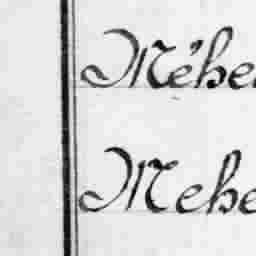 Méhe
Mehe